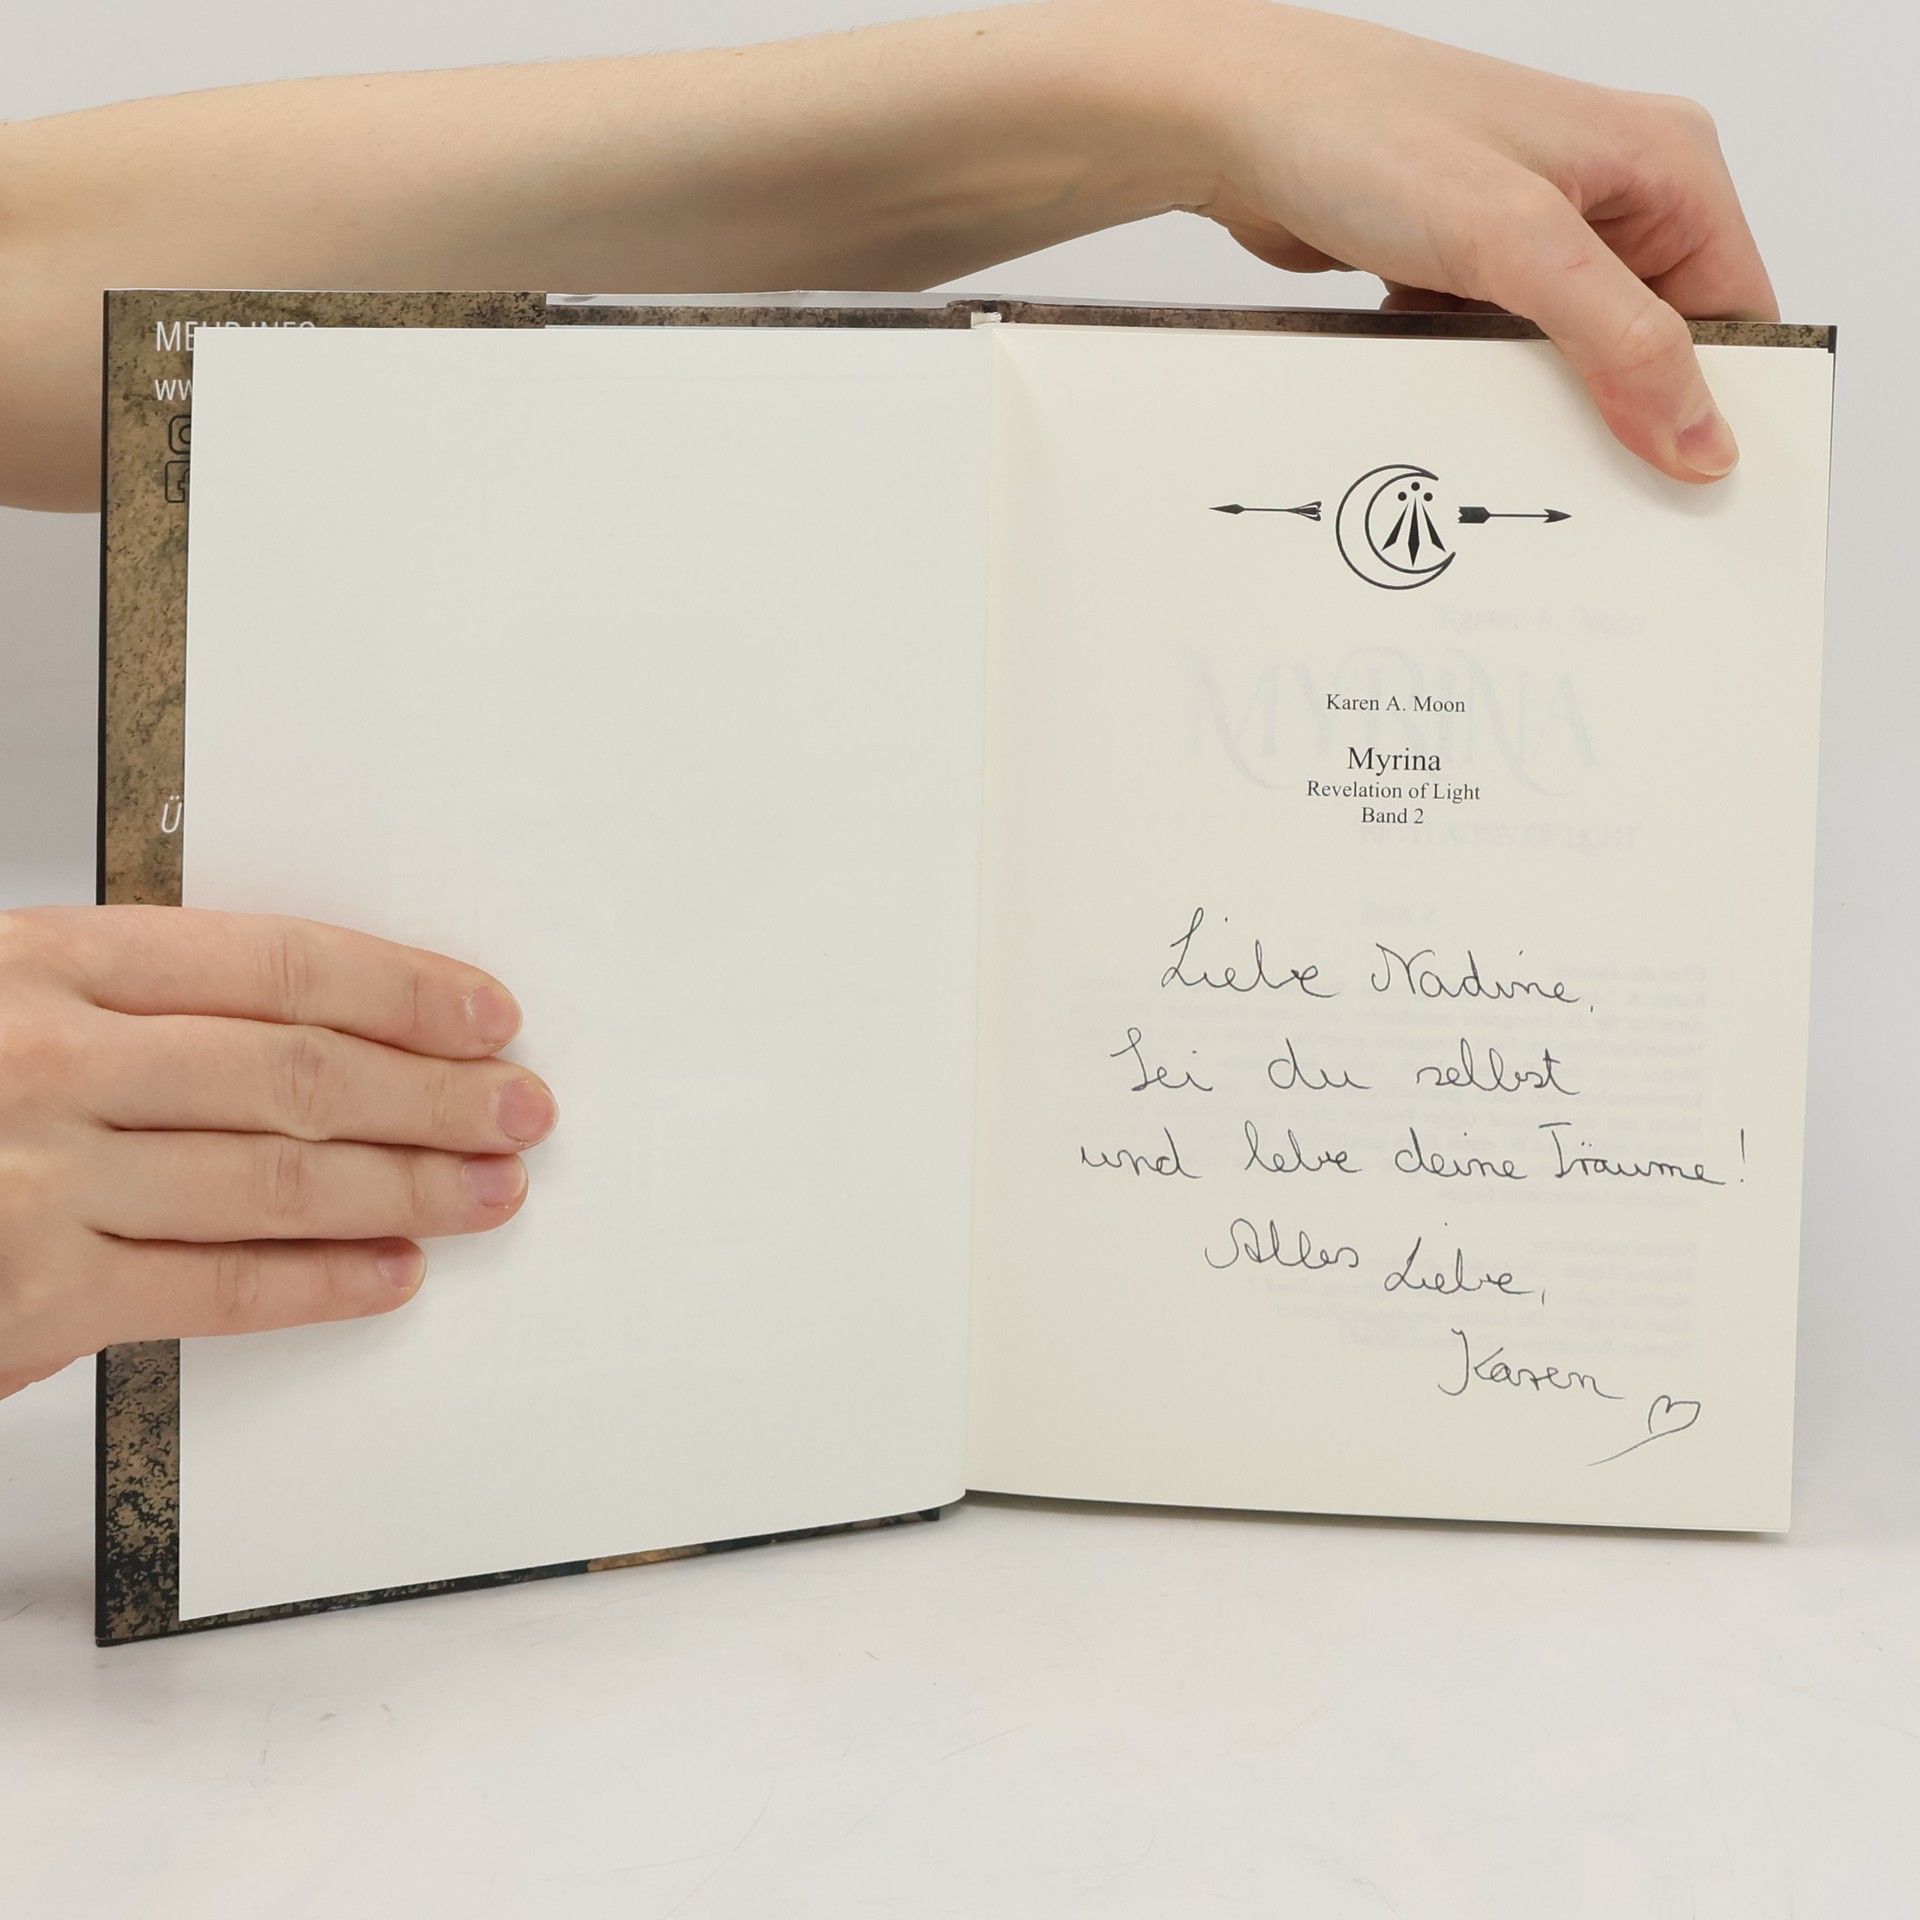 MEHR INFO
Karen A. Moon
Myrina
Revelation of Light
Band 2
Liebe Nadine,
Sei du selbst
und lebe deine Träume!
Alles Liebe,
Karen